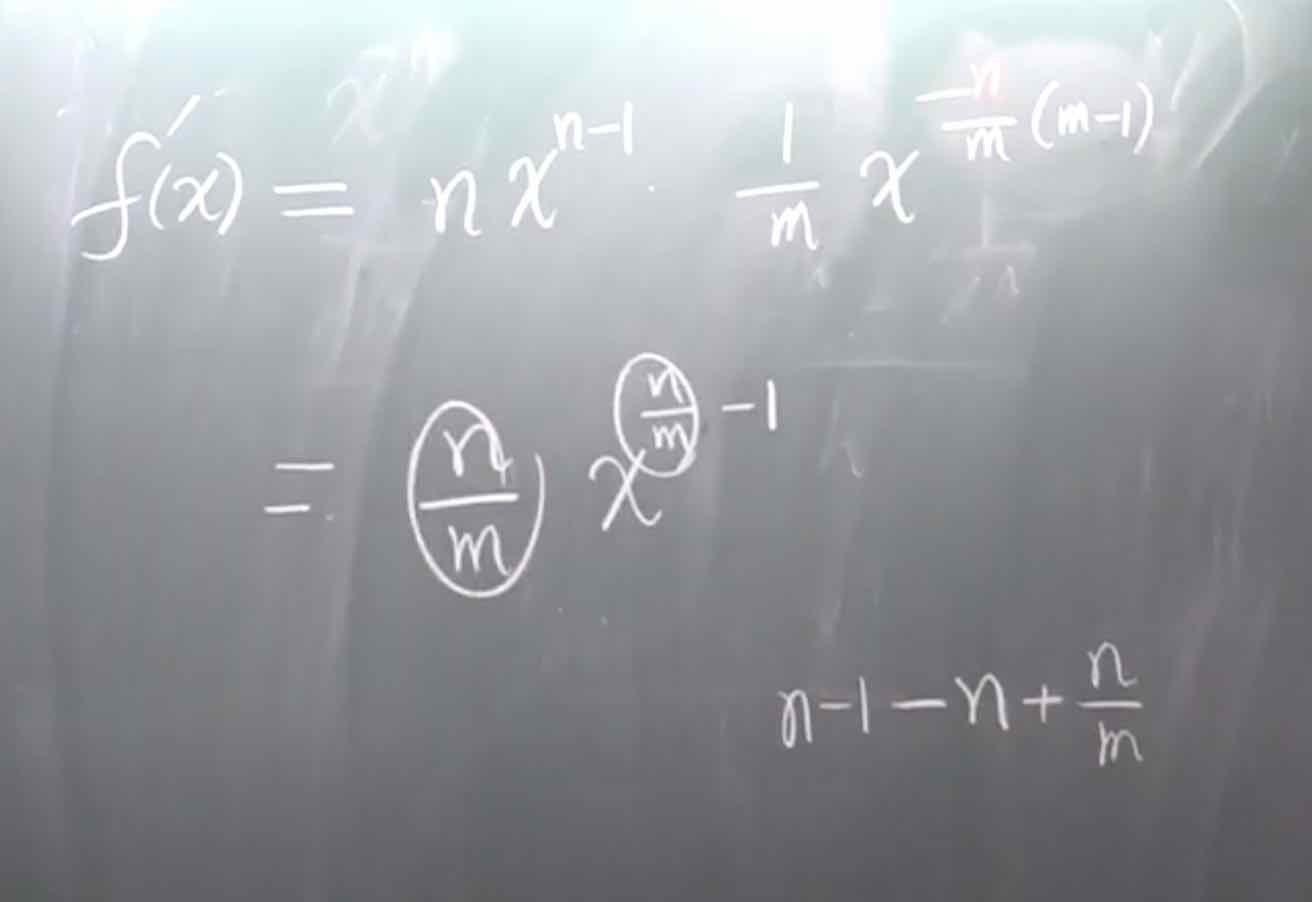 f'(x) = n x^{n-1} · \frac{1}{m} x^{-\frac{n}{m}(m-1)}
= \frac{n}{m} x^{\frac{n}{m}-1}
n-1-n+\frac{n}{m}